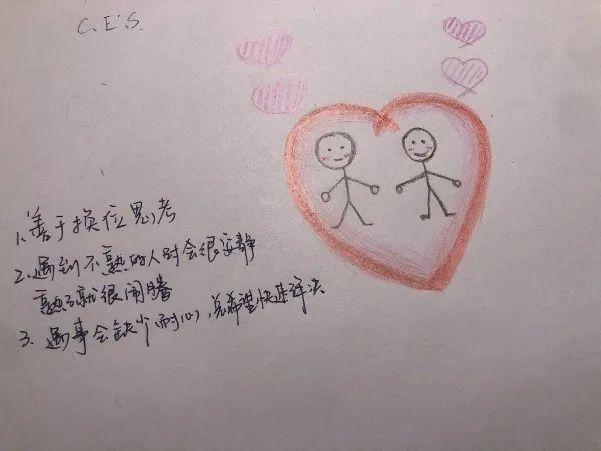 C.E.S.
1、善于换位思考
2、遇到不熟的人时会很安静
熟了就很闹腾
3、遇事会缺少耐心，总希望快速解决